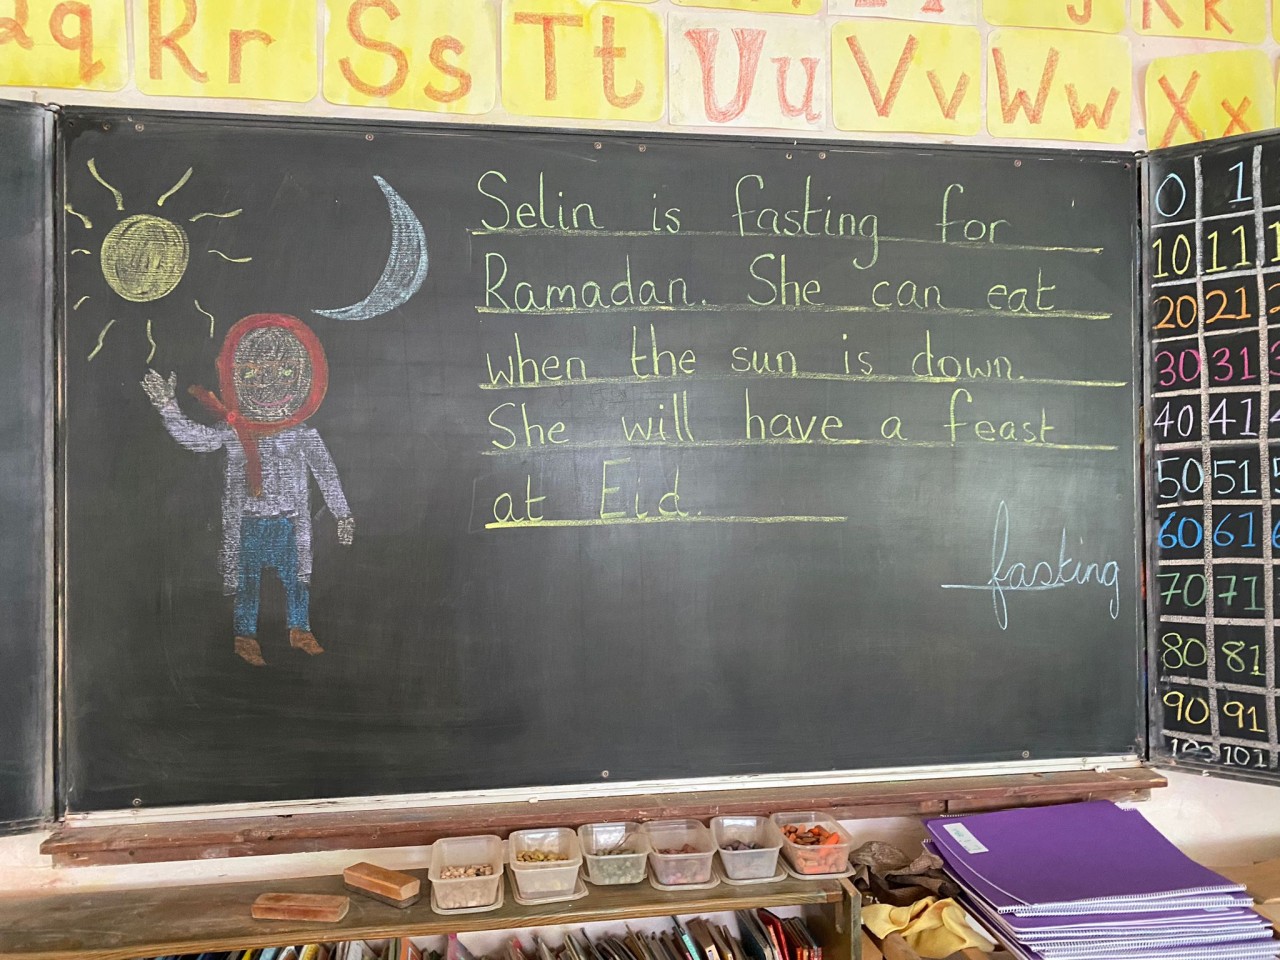 q q R r S s T t U u V v W w X x
Selin is fasting for
Ramadan. She can eat
when the sun is down.
She will have a feast
at Eid.
fasting
0 1
10 11
20 21
30 31
40 41
50 51
60 61
70 71
80 81
90 91
101